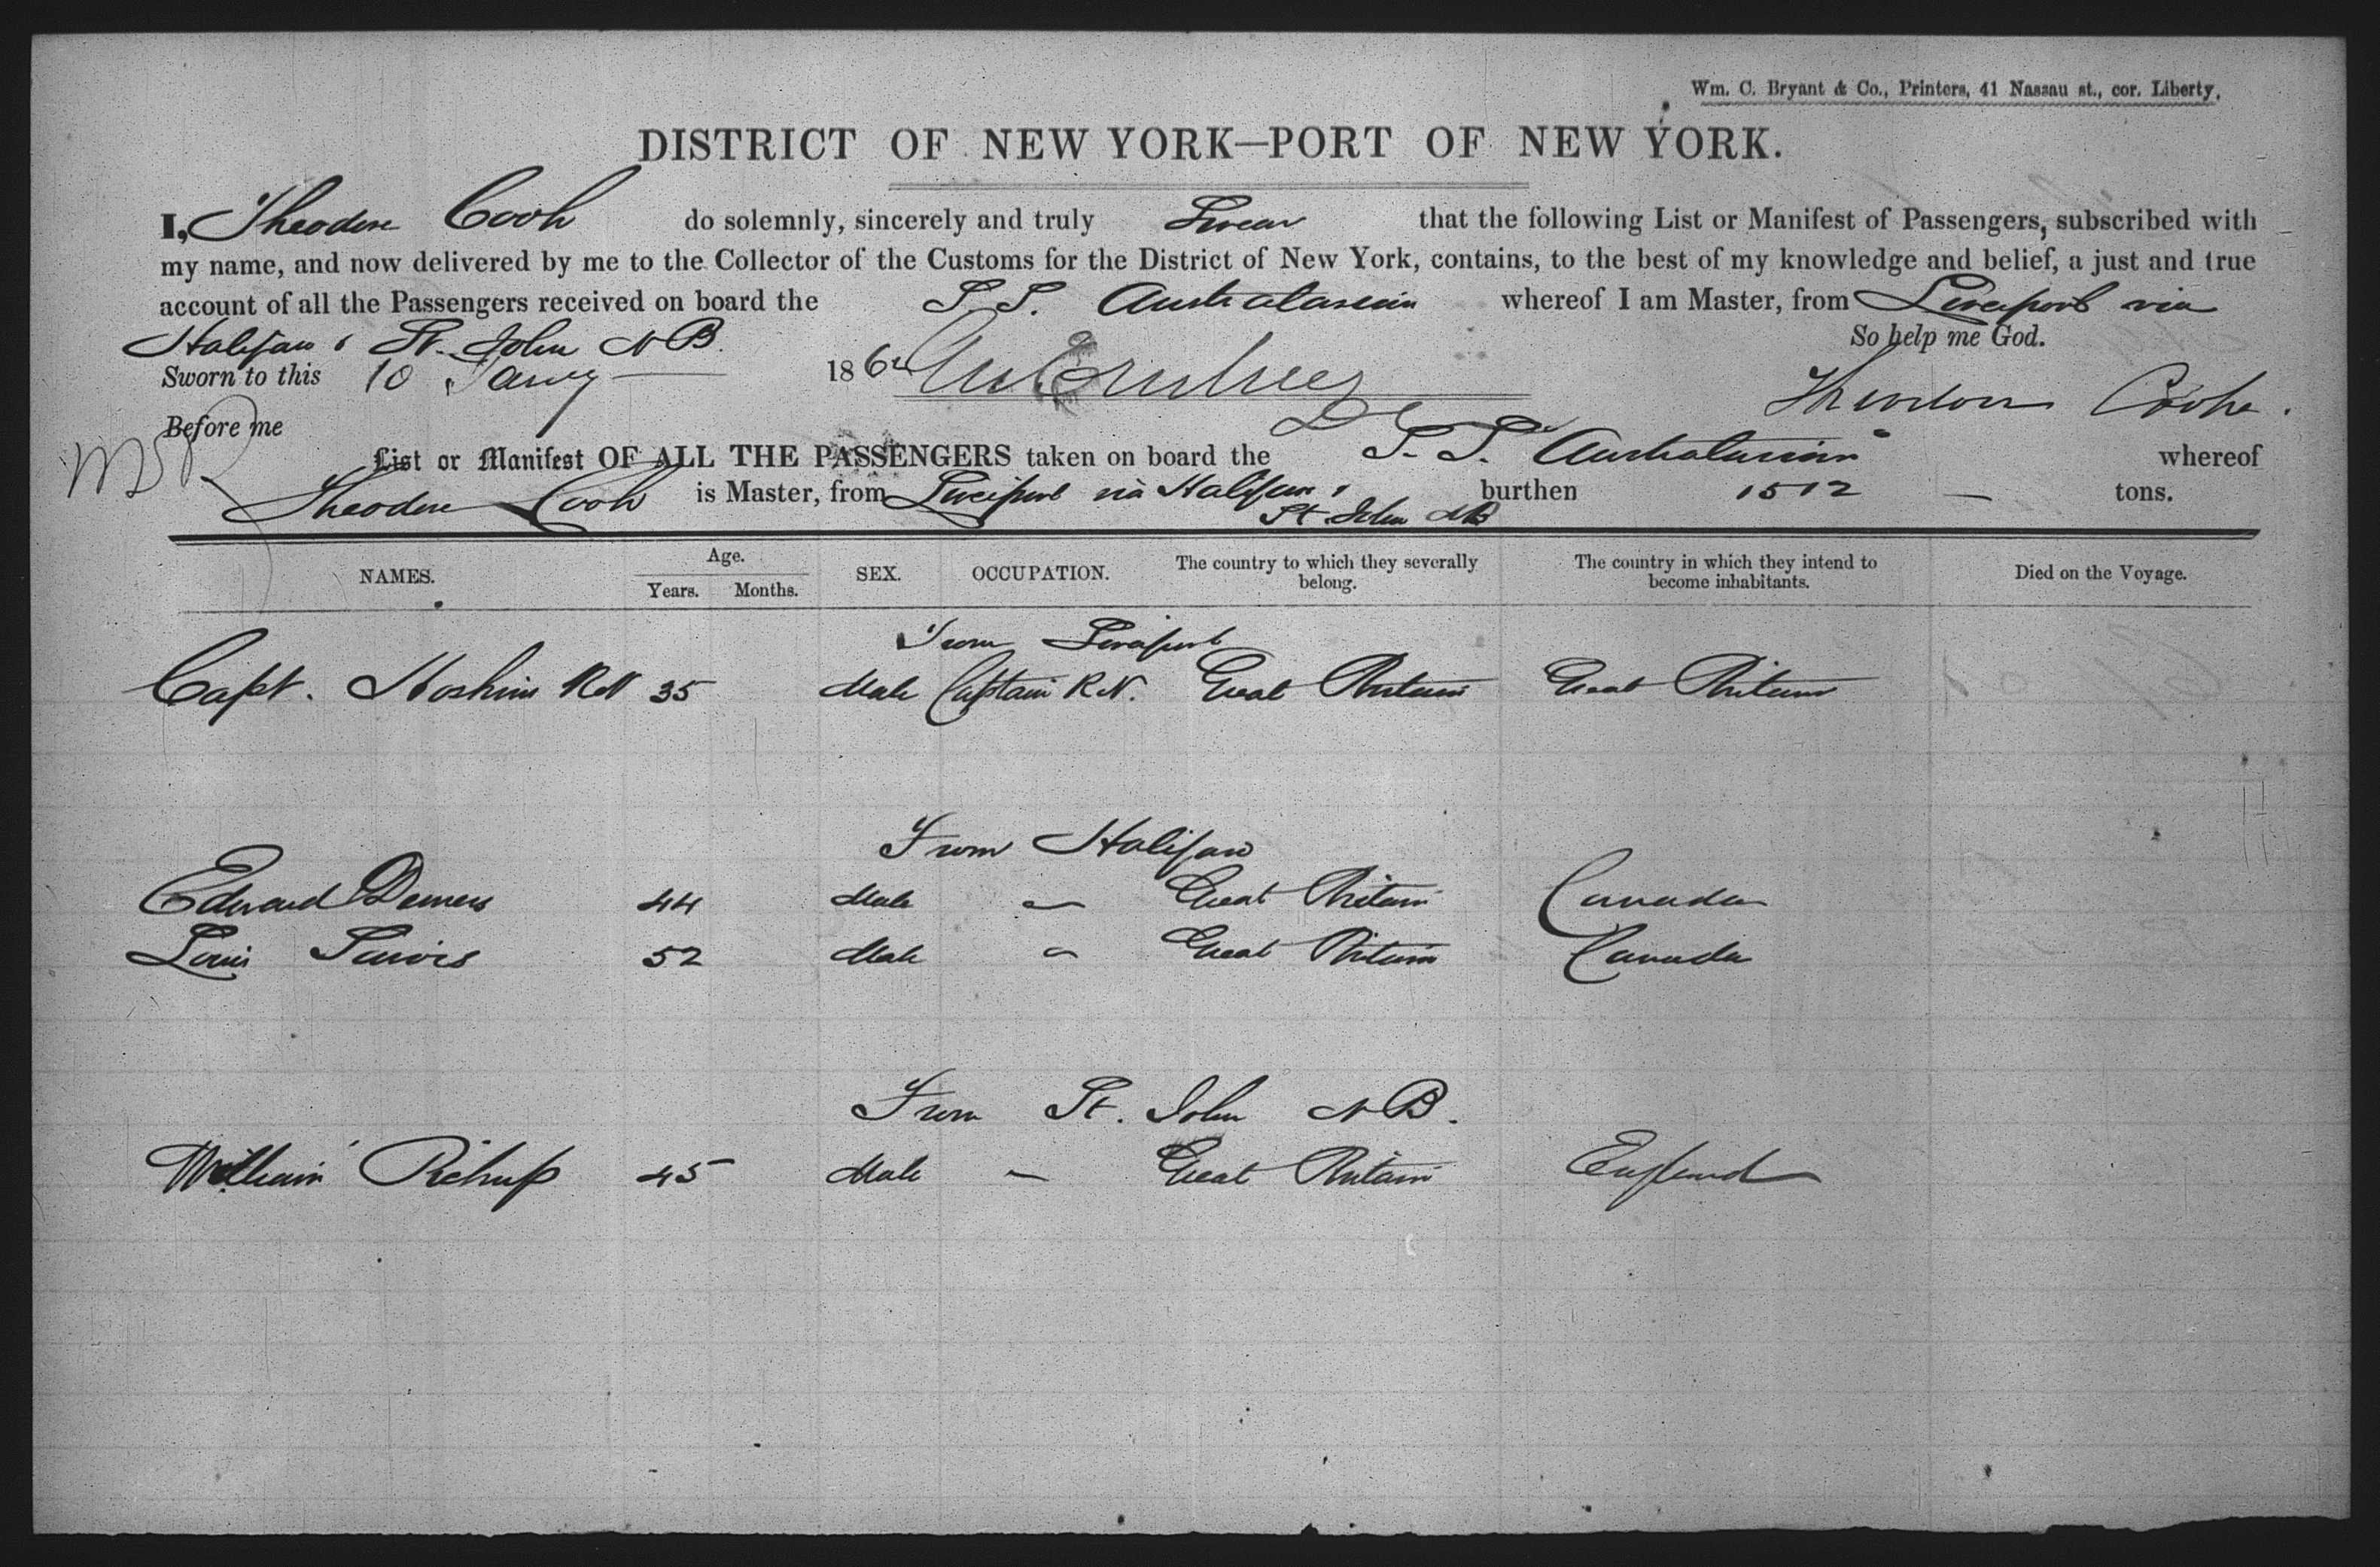 Wm. C. Bryant & Co., Printers, 41 Nassau st., cor. Liberty.
DISTRICT OF NEW YORK—PORT OF NEW YORK.
I, Theodore Cook do solemnly, sincerely and truly Swear that the following List or Manifest of Passengers, subscribed with
my name, and now delivered by me to the Collector of the Customs for the District of New York, contains, to the best of my knowledge and belief, a just and true
account of all the Passengers received on board the S.S. Australasian whereof I am Master, from Liverpool via
Halifax & St. John N B. So help me God.
Sworn to this 10 Jany 186
Theodore Cook.
Before me
List or Manifest OF ALL THE PASSENGERS taken on board the S.S. Australasian whereof
Theodore Cook is Master, from Liverpool via Halifax & St John NB burthen 1512 — tons.
NAMES. Age. Years. Months. SEX. OCCUPATION. The country to which they severally belong. The country in which they intend to become inhabitants. Died on the Voyage.
From Liverpool
Capt. Hoskins RN 35 Male Captain R.N. Great Britain Great Britain
From Halifax
Edward Demers 44 Male — Great Britain Canada
Louis 52 Male — Great Britain Canada
From St. John N B.
William 45 Male — Great Britain England